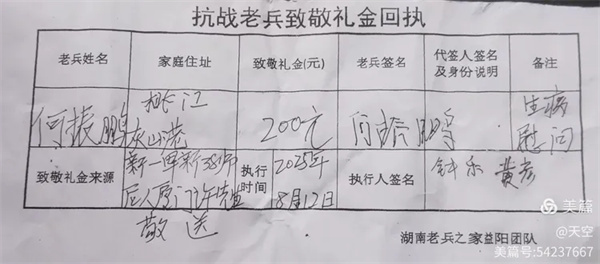 抗战老兵致敬礼金回执
老兵姓名 家庭住址 致敬礼金(元) 老兵签名 代签人签名及身份说明 备注
何振鹏 桃江灰山港 200元 何 鹏 生病慰问
致敬礼金来源 新一军新38师 敬送 执行时间 2025年8月12日 执行人签名 钟乐 黄彦
湖南老兵之家益阳团队
美篇
@天空
美篇号:54237667